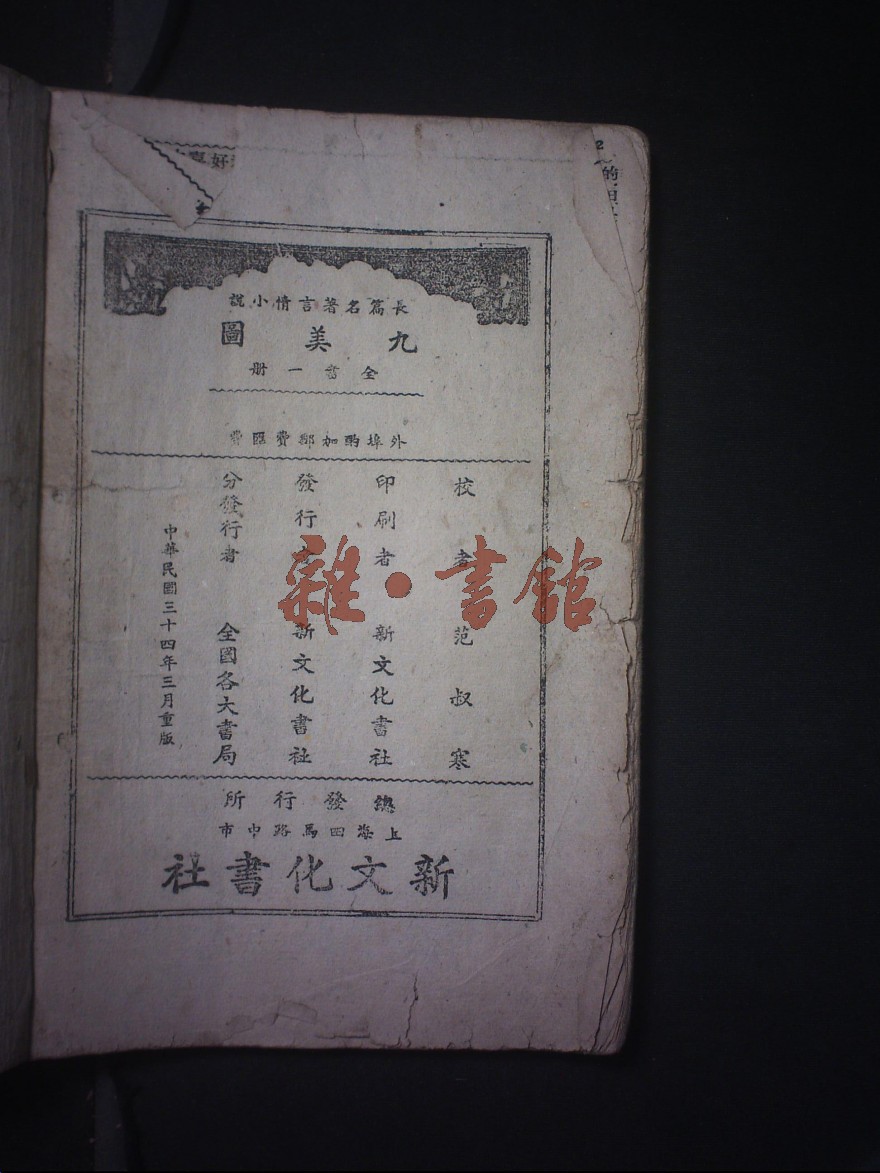 長篇名著言情小說
九美圖
全書一册
外埠酌加郵費匯費
校者 范叔寒
印刷者 新文化書社
發行者 新文化書社
分發行者 全國各大書局
中華民國三十四年三月重版
總發行所
上海四馬路中市
新文化書社
雜·書館